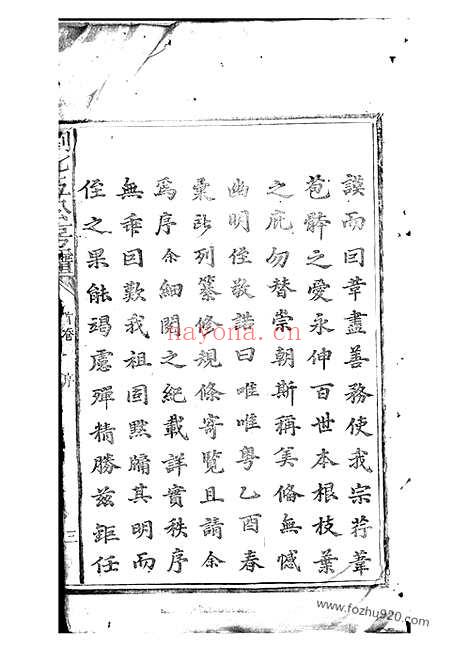 謨而曰革盡善務使我宗荇葦
苞體之愛永伸百世本根枝葉
之庇勿替崇朝斯稱美俻無憾
幽明侄敬諾曰唯唯粤乙酉春
彙訂列纂修規條寄覽且請余
為序余細閱之紀載詳實秩序
無乖因歎我祖固黙牖其明而
侄之果能竭慮殫精勝兹鉅任
首卷
序
三
hayona.cn
www.fozhu920.com